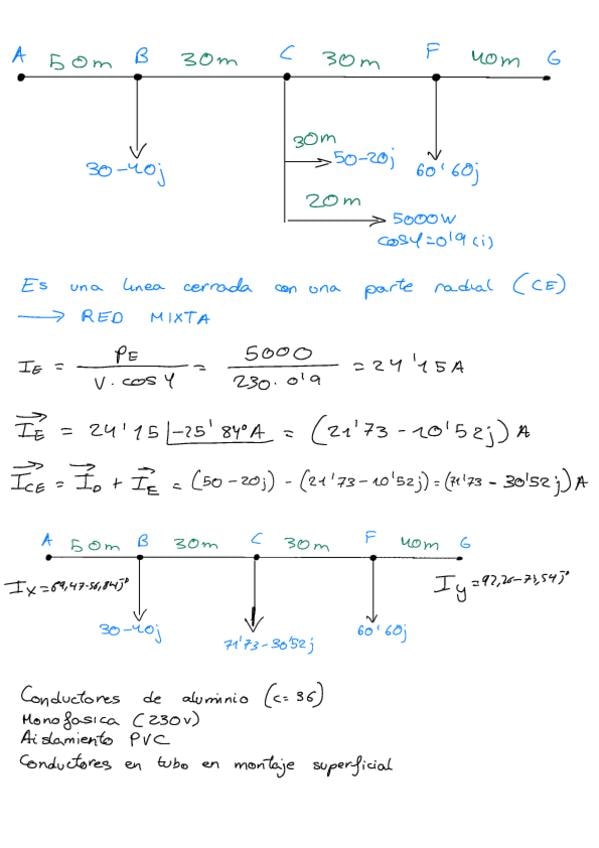 A 50m B 30m C 30m F 40m G
30m
50-20j
30-40j
60'60j
20m
5000W
cosφ=0'9 (i)
Es una linea cerrada con una parte radial (CE)
→ RED MIXTA
IE = PE / V·cosφ = 5000 / 230·0'9 = 24'15A
IE = 24'15 |-25'84º A = (21'73-10'52j) A
ICE = ID + IE = (50-20j) - (21'73-10'52j) = (71'73-30'52j) A
A 50m B 30m C 30m F 40m G
Ix=69,47-56,84jº
Iy=92,26-73,54jº
30-40j
71'73-30'52j
60'60j
Conductores de aluminio (c=36)
Monofasica (230v)
Aislamiento PVC
Conductores en tubo en montaje superficial